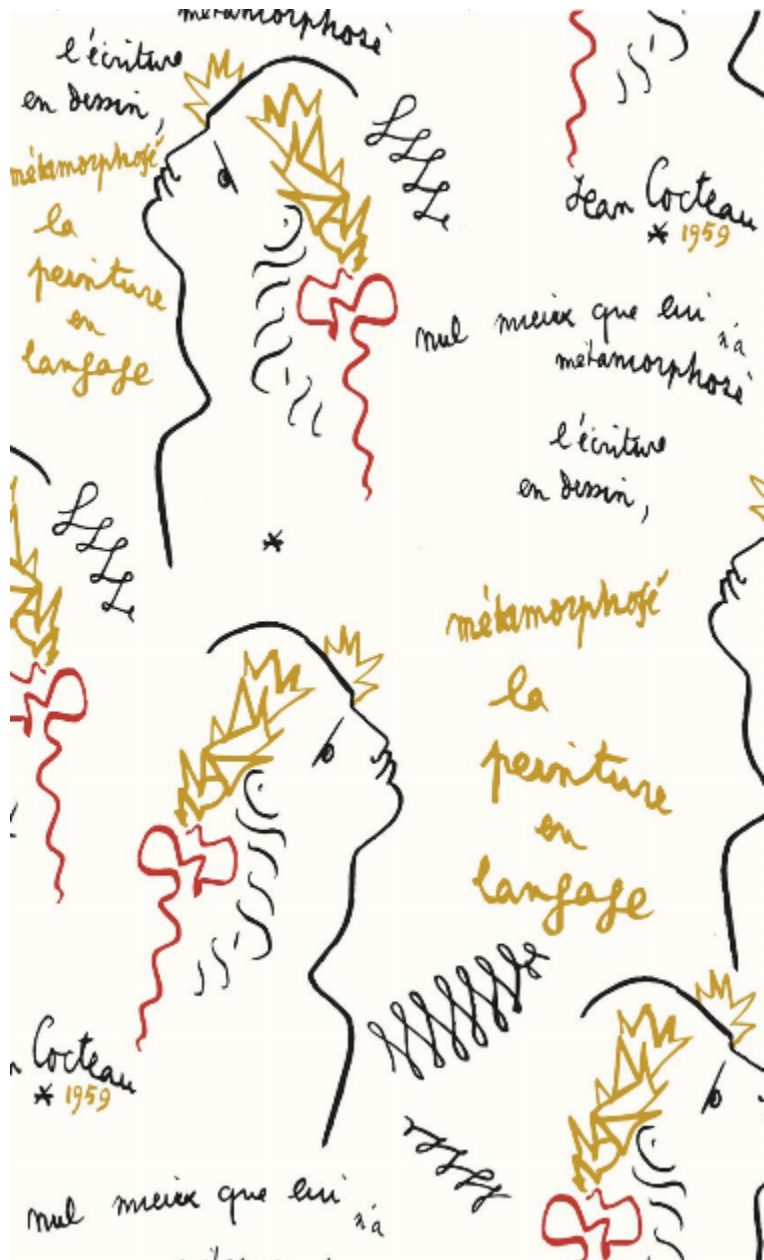 métamorphosé
l'écriture
en dessin,
métamorphosé
la
peinture
en
langage
Jean Cocteau
* 1959
nul mieux que lui n'a
métamorphosé
l'écriture
en dessin,
métamorphosé
la
peinture
en
langage
n Cocteau
* 1959
nul mieux que lui n'a